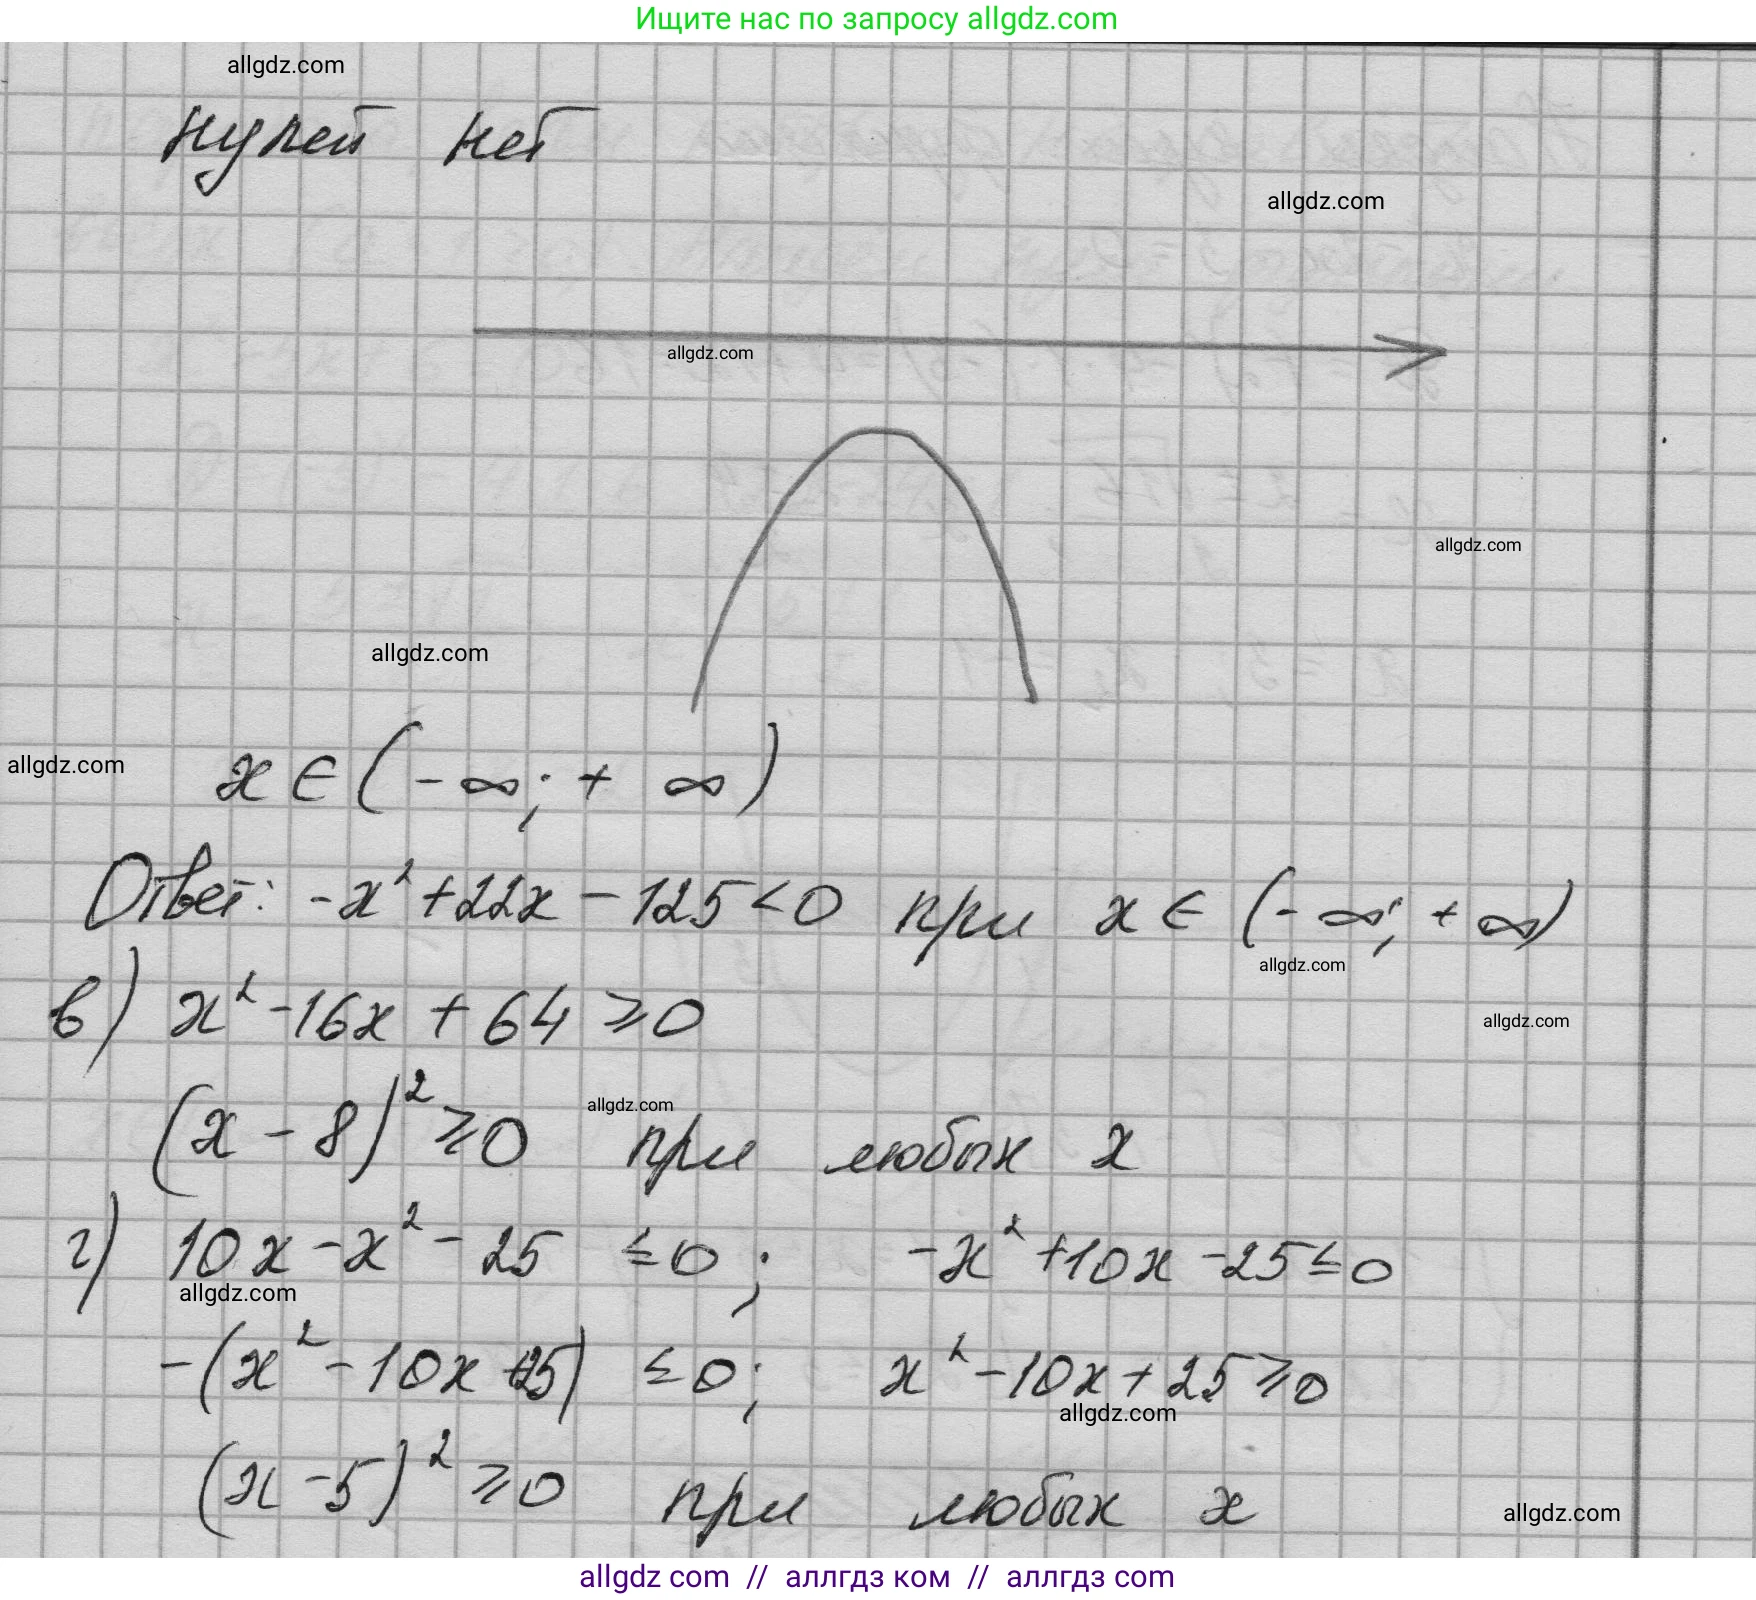 Ищите нас по запросу allgdz.com
allgdz.com
Нулей нет
allgdz.com
allgdz.com
allgdz.com
allgdz.com
allgdz.com
x ∈ (-∞; +∞)
Ответ: -x² + 22x - 125 < 0 при x ∈ (-∞; +∞)
allgdz.com
в) x² - 16x + 64 ≥ 0
allgdz.com
(x - 8)² ≥ 0 при любых x
allgdz.com
г) 10x - x² - 25 ≤ 0; -x² + 10x - 25 ≤ 0
allgdz.com
-(x² - 10x + 25) ≤ 0; x² - 10x + 25 ≥ 0
allgdz.com
(x - 5)² ≥ 0 при любых x
allgdz.com
allgdz com // аллгдз ком // аллгдз com